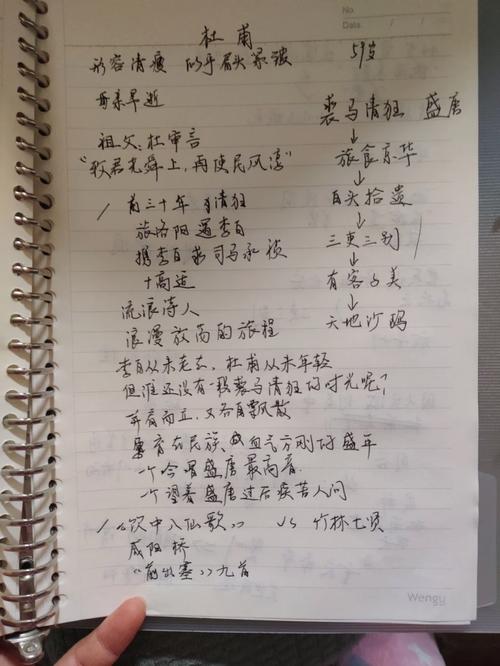 No.
Date
杜甫
形容清瘦 似乎眉头紧皱
59岁
母亲早逝
裘马清狂 盛唐
↓
旅食京华
↓
白头拾遗
↓
三吏三别
↓
有客子美
↓
天地沙鸥
祖父:杜审言
“致君尧舜上,再使民风淳”
前三十年 清狂
旅洛阳遇李白
携李白 司马承祯
+高适
流浪诗人
浪漫放高的旅程
李白从未老去,杜甫从未年轻
但谁还没有一段裘马清狂的时光呢?
并肩而立,又各自飘散
在民族 血气方刚的盛年
一个合唱盛唐最高音
一个望着盛唐过后疾苦人间
《饮中八仙歌》 VS 竹林七贤
咸阳桥
《前出塞》九首
Wengu